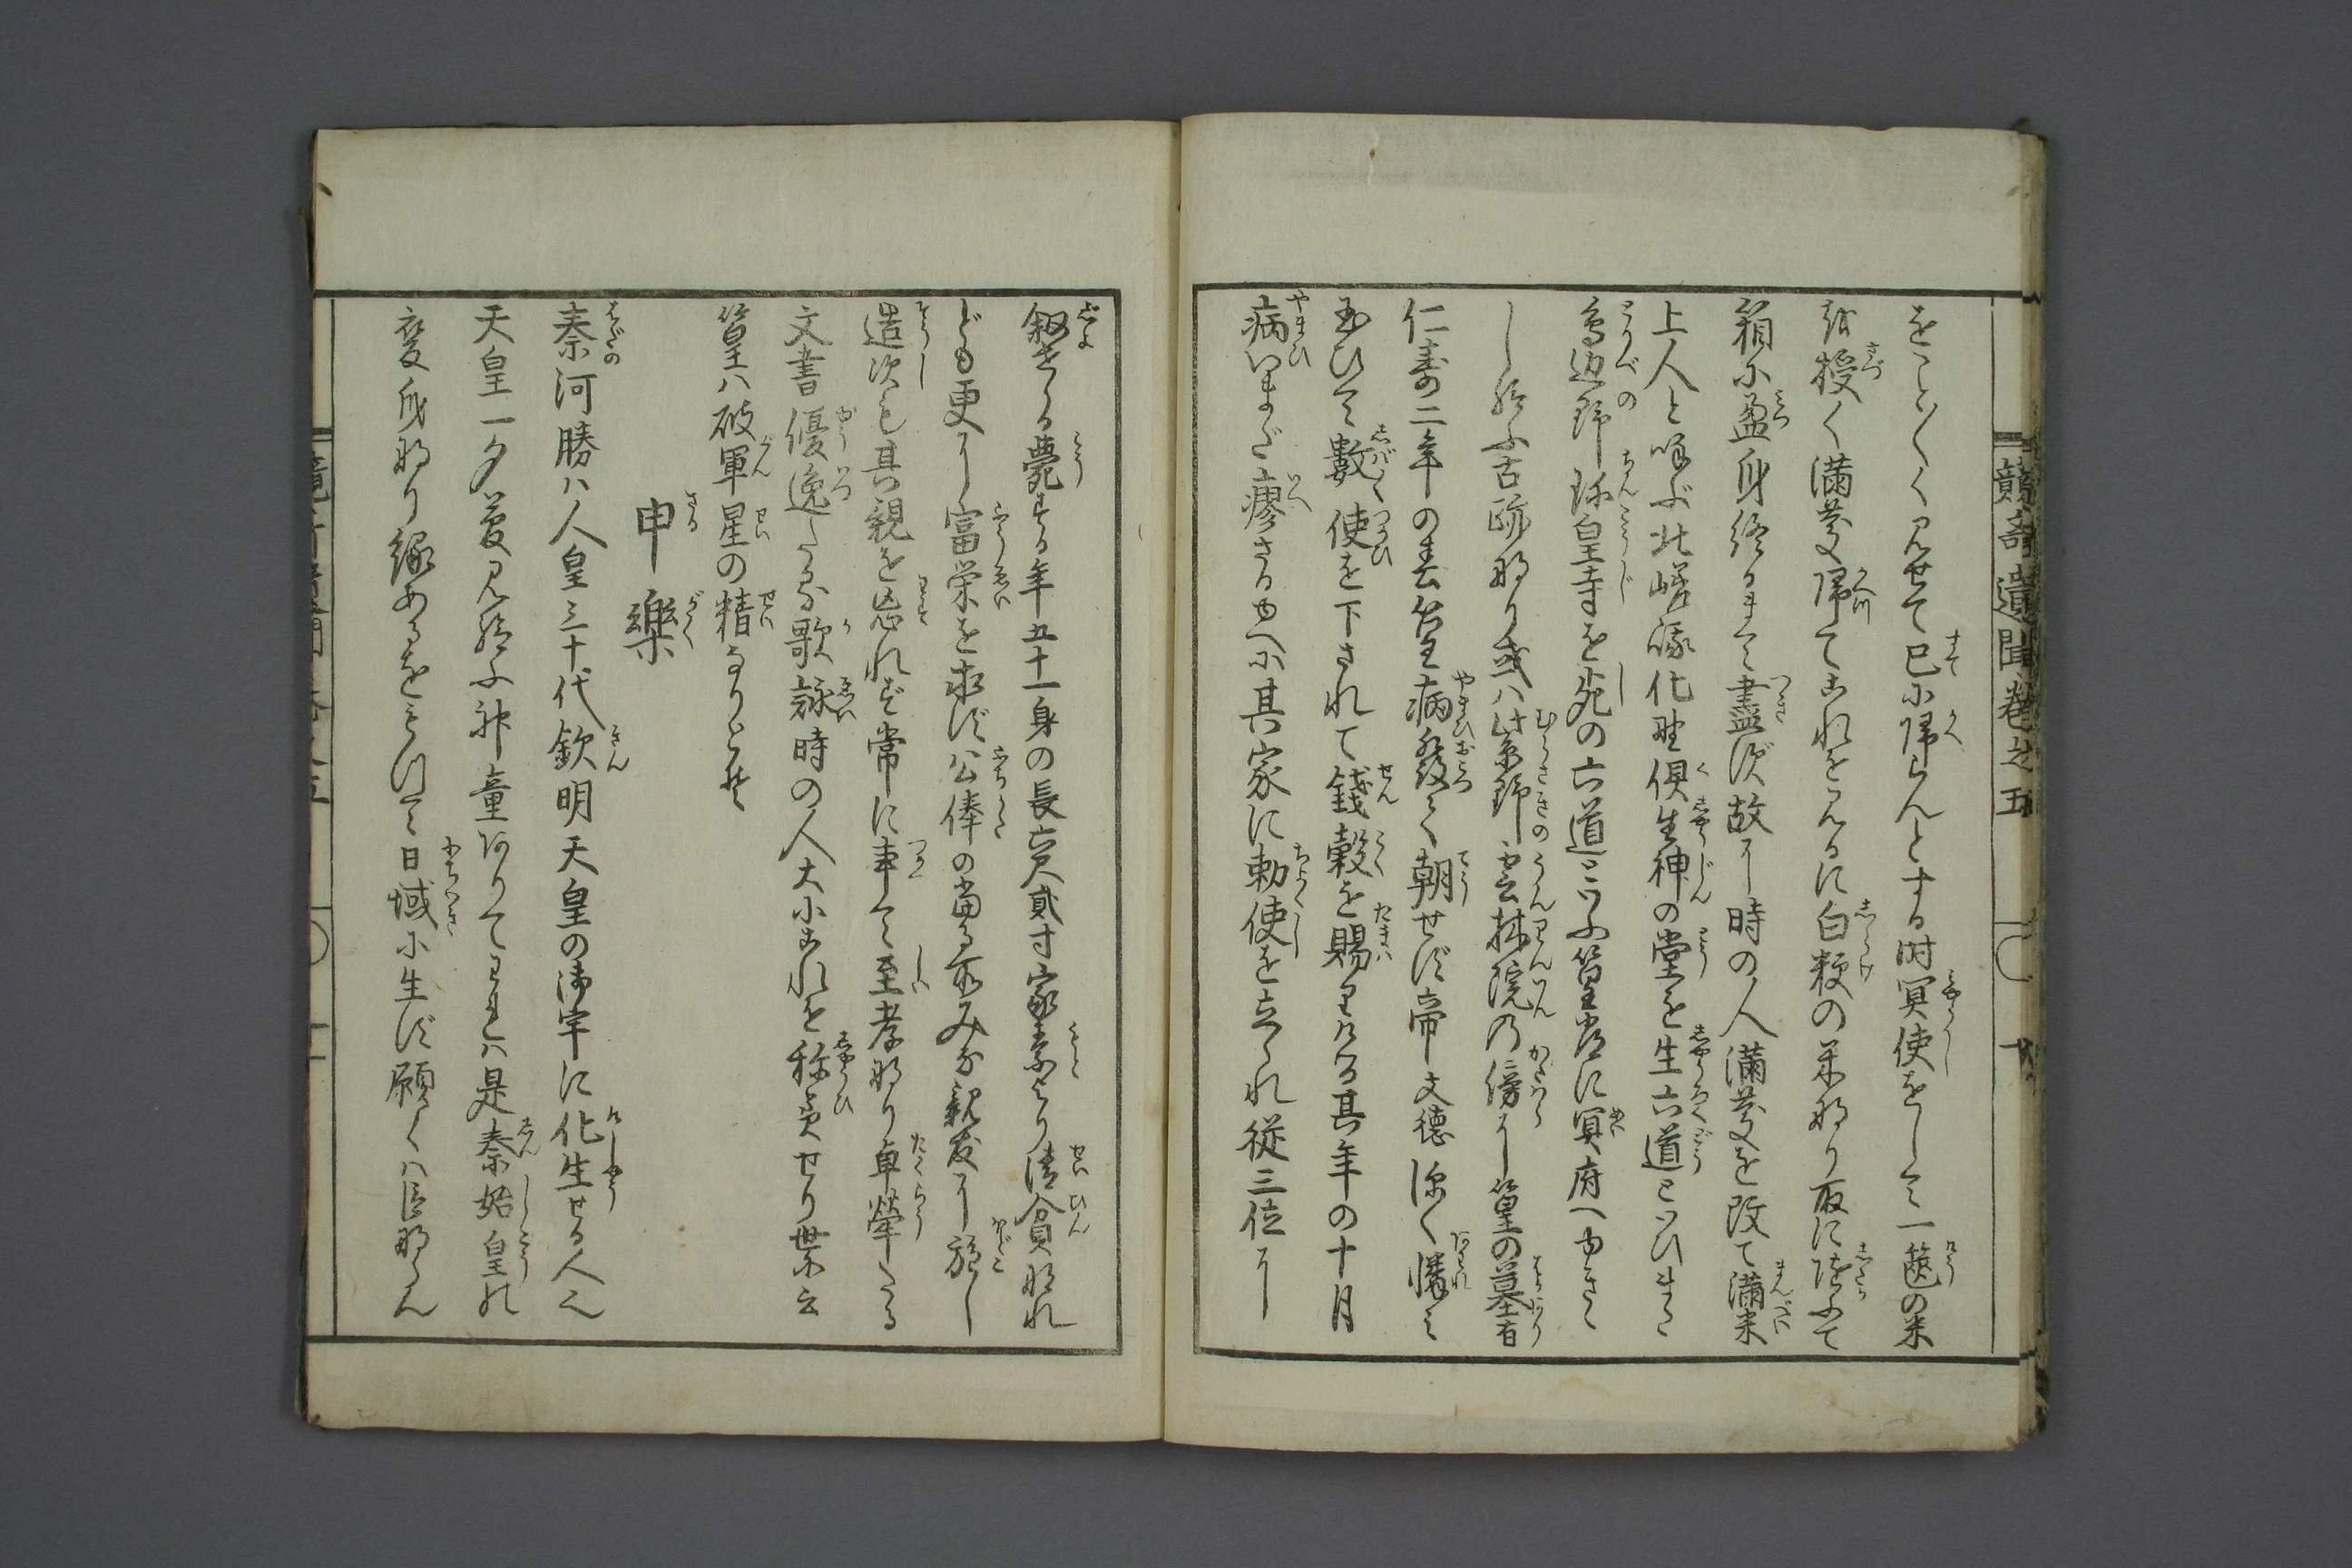 競奇遺聞巻之五
をこと〴〵く見せて已に帰らんとする時冥使をして一箱の米
を授く満慶帰てこれをみるに白粳の米なり取に随て
箱に盈身終るまで盡ず故に時の人満慶を改て満米
上人と呼ぶ北嵯峨化野倶生神の堂を生六道といひまた
鳥辺野珍皇寺を死の六道といふ篁常に冥府へゆき
し給ふ古跡なり或ハ紫野雲林院の傍に篁の墓有
仁壽二年の春篁病發て朝せず帝文徳深く憐み
玉ひて數使を下されて錢穀を賜りける其年の十月
病いまだ瘳さるゆへに其家に勅使を立られ従三位に
叙せらる薨ずる年五十一身の長六尺貳寸家素より清貧なれ
ども更に富栄を求ず公俸の當る所みな親友に施し
造次も其親を忘れず常に事て至孝なり卓犖たる
文書優逸たる歌詠時の人大にこれを称美せり世に云
篁ハ破軍星の精なりとぞ
申樂
秦河勝ハ人皇三十代欽明天皇の御宇に化生せる人也
天皇一夕夢見給ふ神童ありてわれハ是秦始皇の
変身なり縁あるをもつて日域に生ず願くハ臣なん